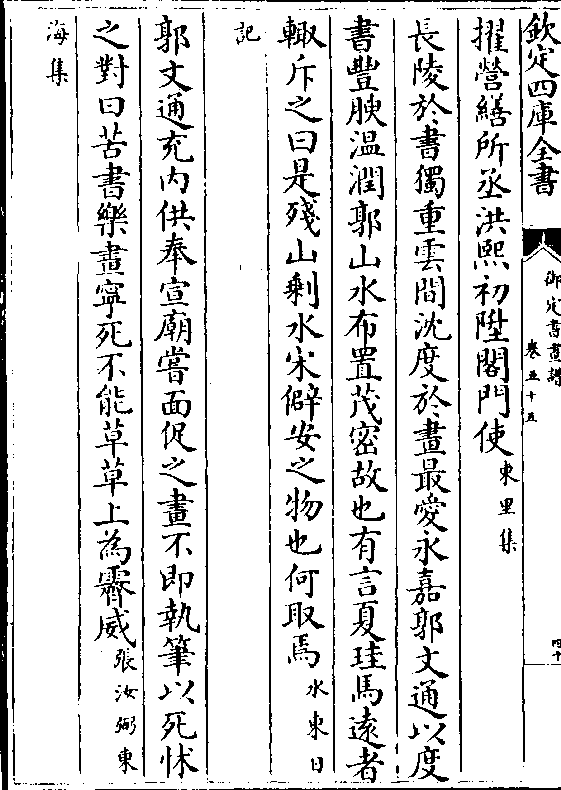 欽定四庫全書
御定書畫譜
卷五十五
四十
擢營繕所丞洪熙初陞閣門使東里集
長陵於書獨重雲間沈度於畫最愛永嘉郭文通以度
書豐腴溫潤郭山水布置茂密故也有言夏珪馬遠者
輙斥之曰是殘山剩水宋僻安之物也何取焉水東日
記
郭文通充内供奉宣廟嘗面促之畫不即執筆以死怵
之對曰苦書樂畫寧死不能草草上為霽威張汝弼東
海集